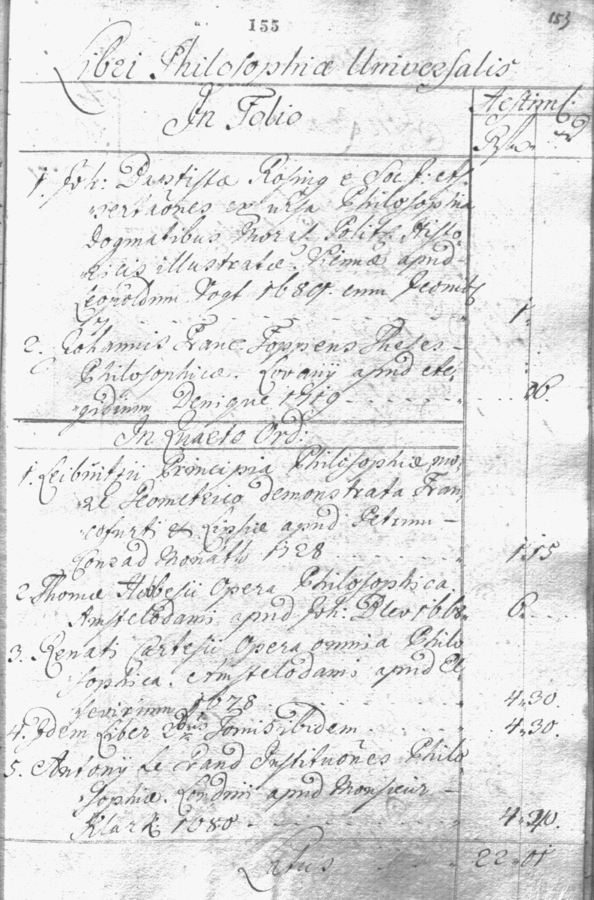 155
153
Libri Philosophiæ Universalis
In Folio
Aestim:
1. Joh: Baptistæ Rosing e Soc J:
vertaōnes ex Philosophiæ
Dogmatibus Moral Polit: Histo,
ricis illustratæ. Viennæ apud
Leopoldum Vogt 1689. cum
1.
2. Johannis Franc Foppens Theses
Philosophicæ. Lovany apud Ae,
gidium Denique 1719
In Quarto Ord:
1. Leibnitzii Principia Philosophiæ mo,
re Geometrico demonstrata Fran,
cofurti et Lipsiæ apud Petrum
Conrad Monath 1728
1.15
2. Thomæ Hobbesii Opera Philosophica
Amstelodami apud Joh: Blev 1668.
6.
3. Renati Cartesii Opera omnia Philo
sophica. Amstelodami apud El,
sevirium 1678
4.30.
4. Idem Liber Tomis ibidem
4.30.
5. Antony Le Grand Institutiōnes Philo
sophiæ. Londini apud Monsieur
Klark 1680
Latus
22.01